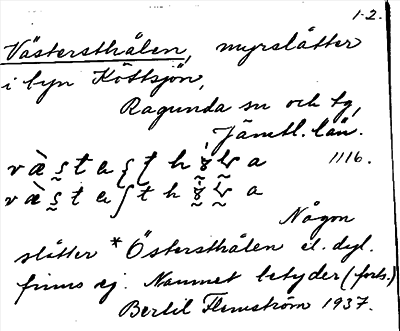 1-2.
Västersthålen, myrslåtter
i byn Köttsjön,
Ragunda sn och tg,
Jämtl. län.
1116.
Någon
slåtter *Östersthålen el. dyl.
finns ej. Namnet betyder (forts.)
Bertil Flemström 1937.